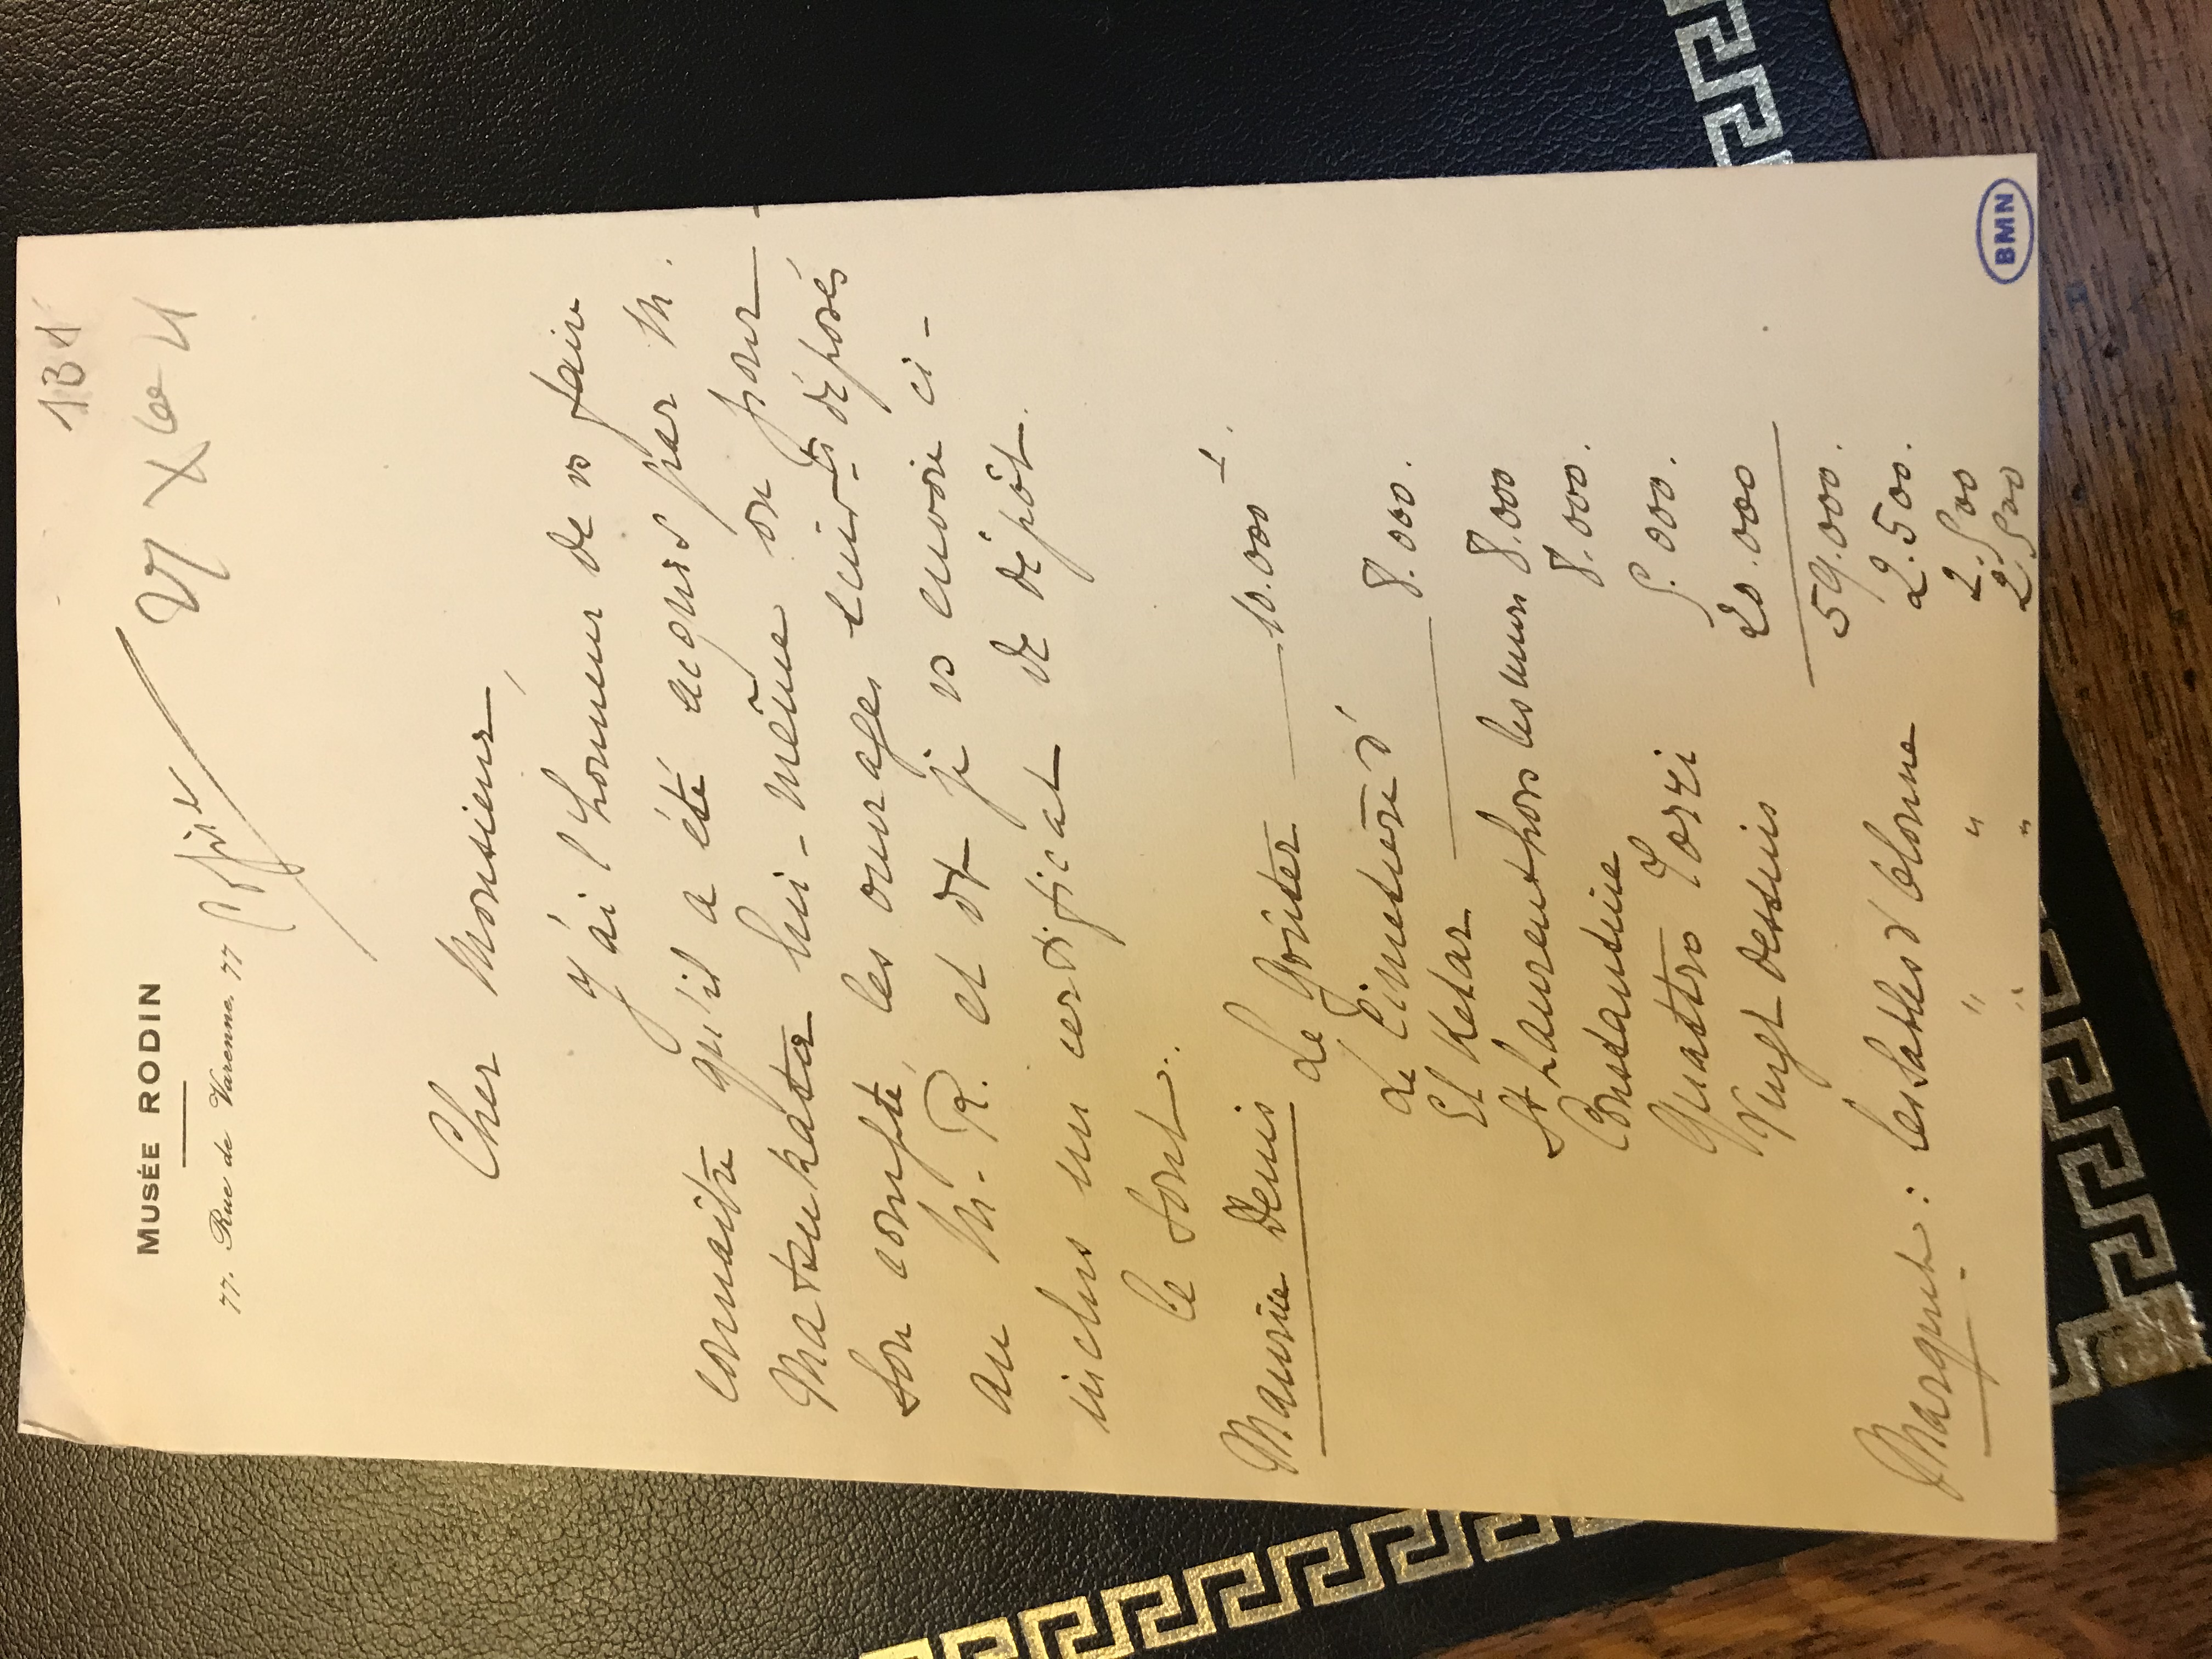 131
MUSÉE RODIN
77. Rue de Varenne. 77
Copie
Cher Monsieur,
J'ai l'honneur de vs faire
connaître qu'il a été acquis par M.
Matsukata lui-même ou pour
son compte, les ouvrages suivts déposés
au M. R. et dt je vs envoie ci-
inclus un certificat de dépôt.
Ce sont..
Maurice Denis Le Goûter 10.000
Le Cimetière d'
El Ketar 8.000.
St Laurent hors les murs 8.000
Constantine 8.000.
Quattro Torri 5.000.
Vingt dessins 20.000
59.000.
Marquet : Les Sables d'Olonne 2.500.
" " 2.500
" " 2.500
BMN